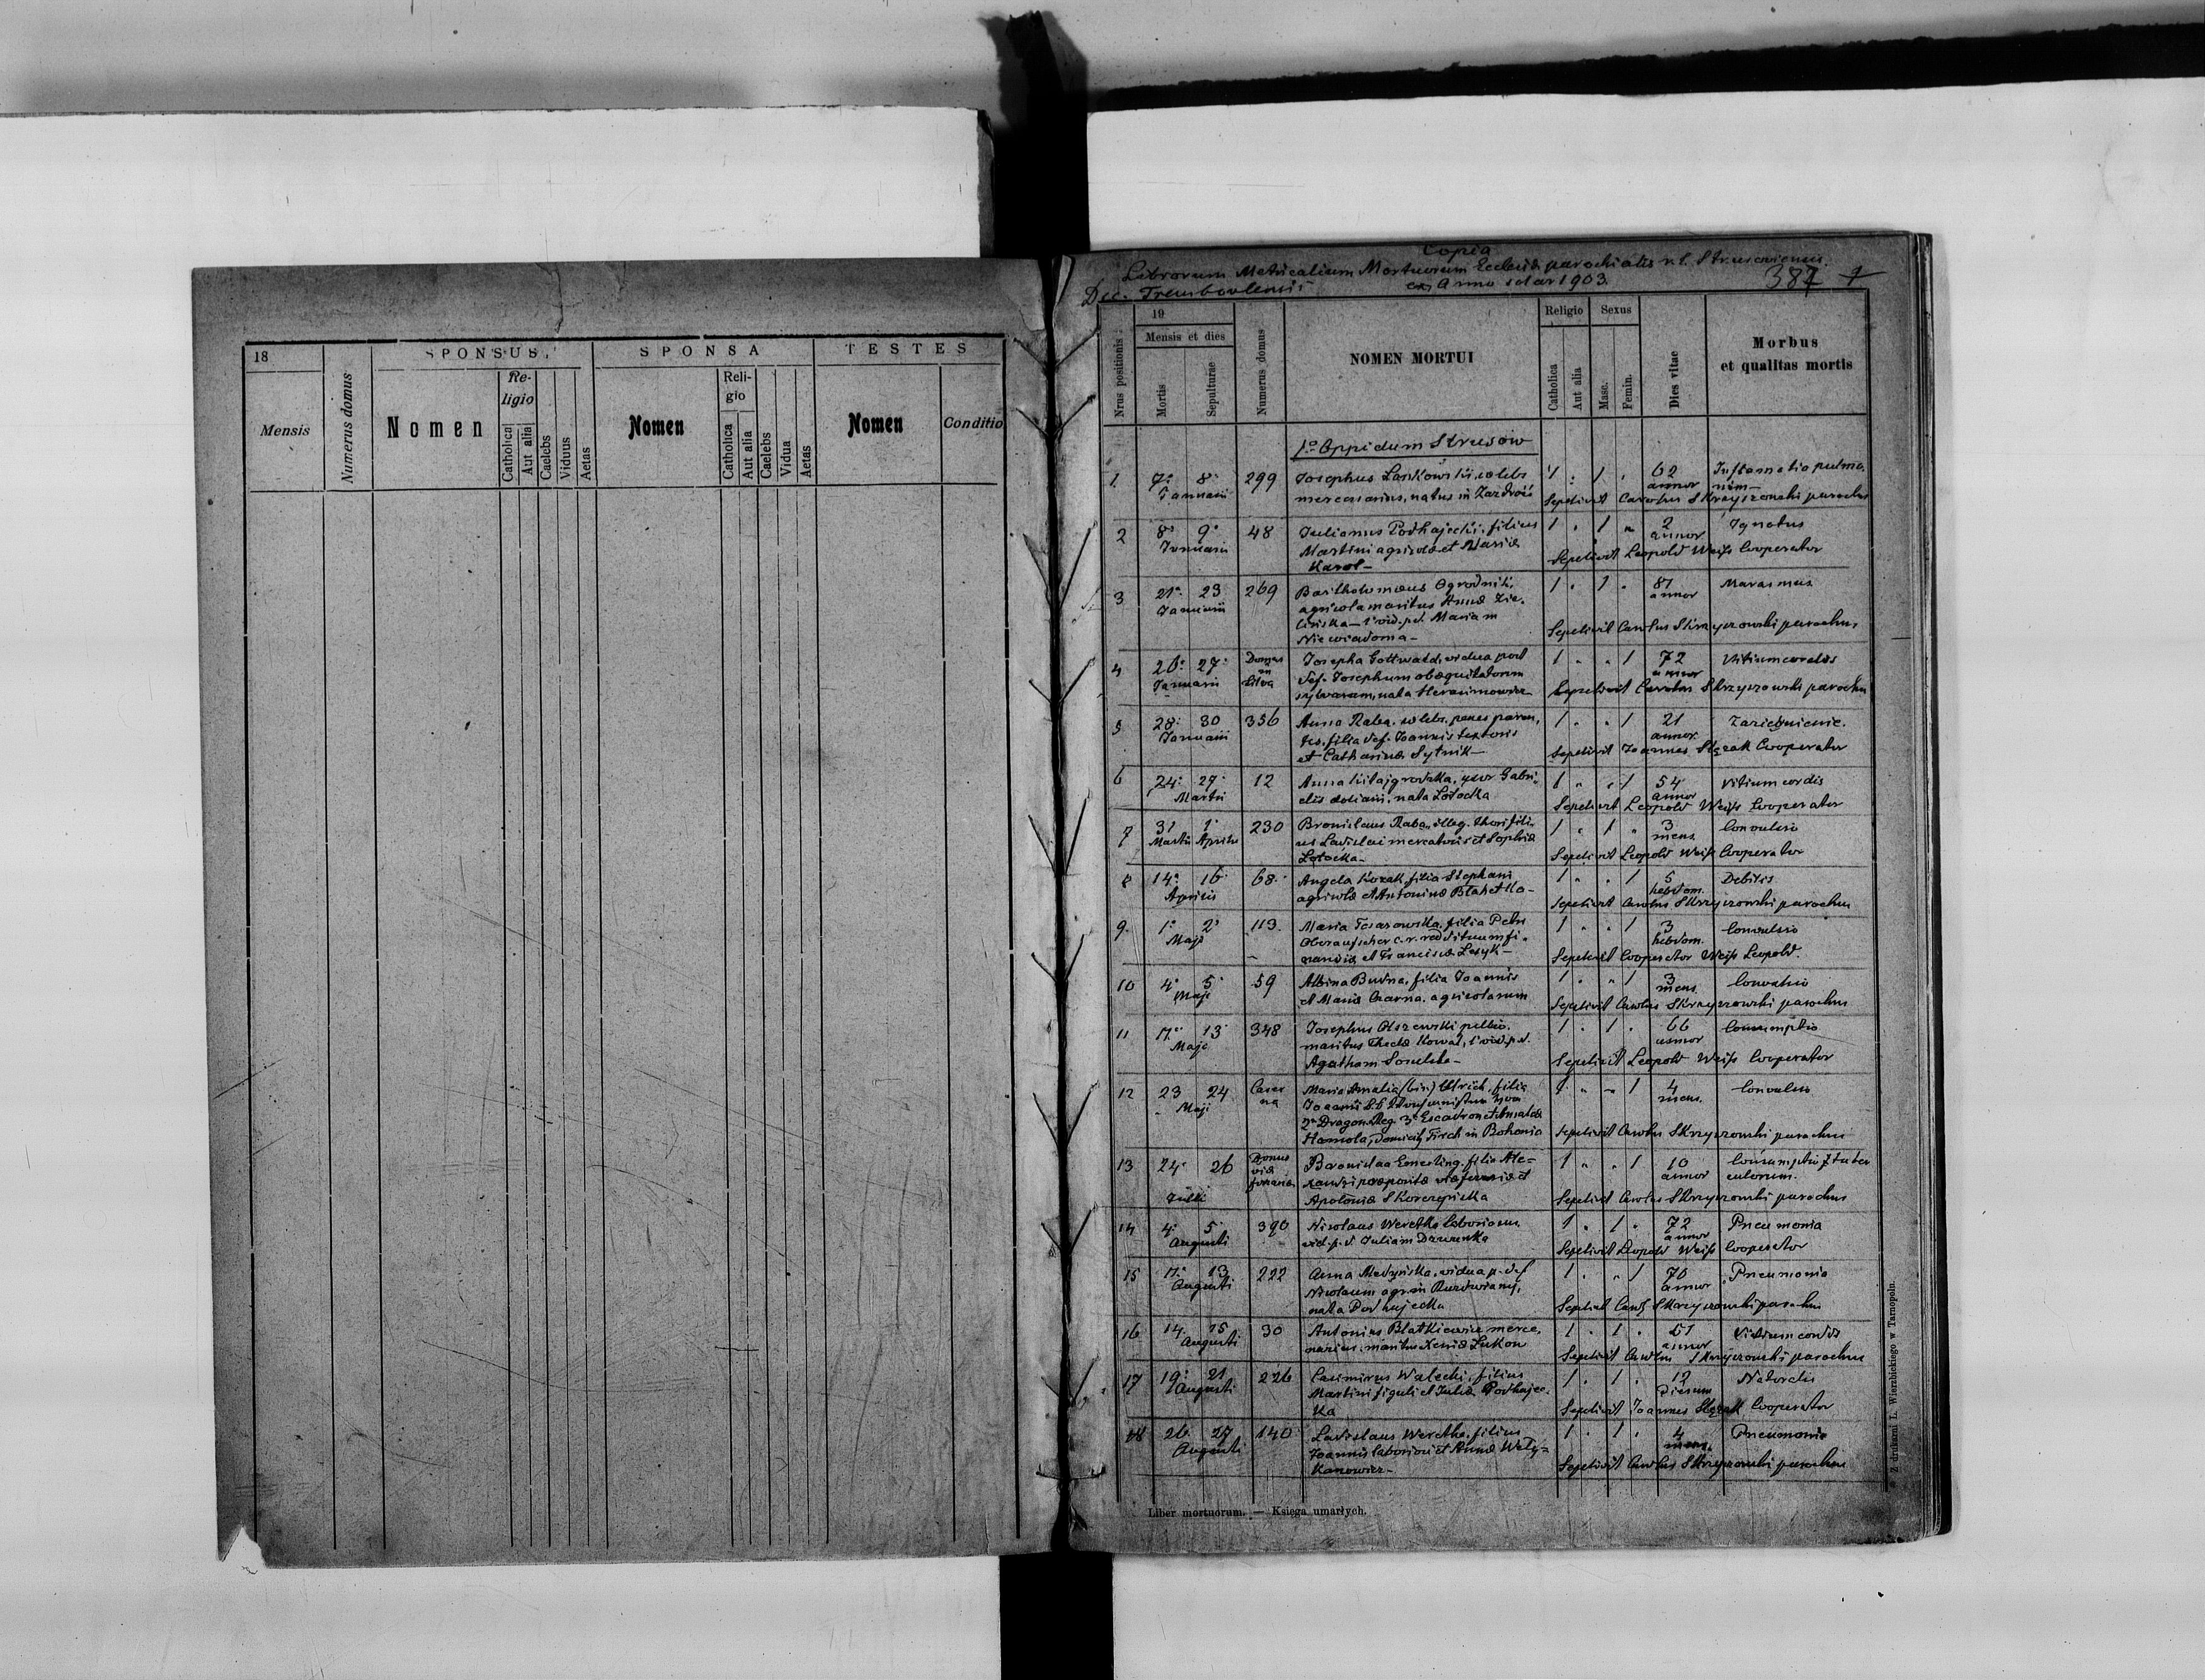 18
Mensis
Numerus domus
SPONSUS,
Nomen
Re-
ligio
Catholica
Aut alia
Caelebs
Viduus
Aetas
SPONSA
Nomen
Reli-
gio
Catholica
Aut alia
Caelebs
Vidua
Aetas
TESTES
Nomen
Conditio
Copia
Librorum Metricalium Mortuorum Ecclesiæ parochialis r. l. Strusoviensis
Dec. Trembovlensis
ex Anno solar 1903.
387 1
Nrus positionis
19
Mensis et dies
Mortis
Sepulturae
Numerus domus
NOMEN MORTUI
Religio
Catholica
Aut alia
Sexus
Masc.
Femin.
Dies vitae
Morbus
et qualitas mortis
1º Oppidum Strusów
1 7. 8. 299 Josephus Lankowski, cælebs 1 . 1 . 62 Inflamatio pulmo
Januarii mercenarius, natus in annor num
Sepelivit Carolus Skrzyszowski parochus
2 8. 9. 48 Julianus Podhajecki, filius 1 . 1 " 2 Ignotus
Januarii Martini agricolæ et Mariæ annor
Karol Sepelivit Leopold Weiß Cooperator
3 21. 23 269 Bartholomæus Ogrodnik, 1 . 1 . 81 Marasmus
Januarii agricola maritus Annæ Zie- annor
lińska - 1 vid. p. d. Mariam
Niewiadoma - Sepelivit Carolus Skrzyszowski parochus
4 26. 27. Domus in silva Josepha Gottwald, vidua post 1 . . 1 72 Vitium cordis
Januarii def. Josephum annor
nata Herasimowicz Sepelivit Carolus Skrzyszowski parochus
5 28. 30 356 Anna Raba, cælebs, penes paren- 1 . . 1 21
Januarii tes, filia def. Joannis textoris annor
et Catharinæ Sytnik - Sepelivit Joannes Ślęzak Cooperator
6 24. 27. 12 Anna Kitajgrodzka, uxor Gabri- 1 " " 1 54 Vitium cordis
Martii elis doliarii, nata Łotocka annor
Sepelivit Leopold Weiß Cooperator
7 31 1. 230 Bronislaus Raba, illeg. thori fili- 1 . 1 . 3 Convulsio
Martii Aprilis us Ladislai mercatoris et Sophiæ mens.
Łotocka - Sepelivit Leopold Weiß Cooperator
8 14. 16. 68. Angela Kozak filia Stephani 1 . . 1 5 Debilis
Aprilis agricolæ et Antoninæ hebdom.
Sepelivit Carolus Skrzyszowski parochus
9. 1. 2. 113. Maria filia Petri 1 . . 1 3 Convulsio
Maji Oberaufseher c. r. reddituum fi- hebdom.
nanciæ et Franciscæ Lesyk - Sepelivit Cooperator Weiß Leopold.
10 4. 5. 59 Albina Budna, filia Joannis 1 . " 1 3 Convulsio
Maji et Mariæ Czarna, agricolarum mens.
Sepelivit Carolus Skrzyszowski parochus
11 11. 13. 348 Josephus Olszewski pellio, 1 . 1 . 66 Consumptio
Maji maritus Theclæ Kowal, 1 vid. p. d. annor
Agatham - Sepelivit Leopold Weiß Cooperator
12 23 24 Caserna Maria Amalia (bin) Ulrich, filia 1 " " 1 4 Convulsio
Maji Joannis mens.
Dragon. Reg. 3 Escadron et Amaliæ
in Bohemia Sepelivit Carolus Skrzyszowski parochus
13 24. 26 Domus viæ ferrariæ Bronislaa Ernestina, filia Ale- 1 " " 1 10 Consumptio tuber
Julii xandri præpositæ viæ ferreæ et annor culorum.
Apoloniæ Skorczyńska Sepelivit Carolus Skrzyszowski parochus
14 4. 5. 390 Nicolaus Weretka laboriosus 1 . 1 . 72 Pneumonia
Augusti vid. p. d. Juliam annor
Sepelivit Leopold Weiß Cooperator
15 11. 13. 222 Anna Medyńska, vidua p. def. 1 . " 1 70 Pneumonia
Augusti Nicolaum agr. in annor
nata Podhajecka Sepelivit Carol Skrzyszowski parochus
16 14. 15 30 Antonius Blatkiewicz merce- 1 . 1 . 51 Vitium cordis
Augusti narius, maritus Xeniæ Łukow annor
Sepelivit Carolus Skrzyszowski parochus
17 19. 21 226 Casimirus Walecki, filius 1 . 1 . 12 Naturalis
Augusti Martini figuli et Juliæ Podhajec- dierum
ka Sepelivit Joannes Ślęzak Cooperator
18 26. 27 140 Ladislaus Weretka, filius 1 . 1 . 4 Pneumonia
Augusti Joannis laboriosi et Annæ Wały- mens.
kanowicz - Sepelivit Carolus Skrzyszowski parochus
Liber mortuorum. — Księga umarłych.
Z drukarni L. Wierzbickiego w Tarnopolu.